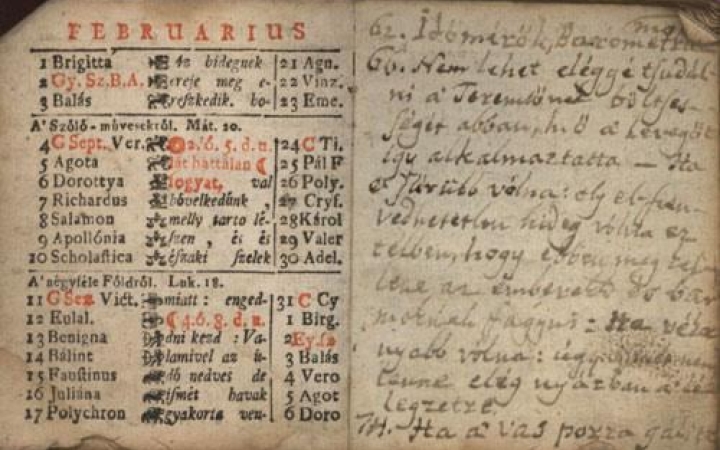 FEBRUARIUS
1 Brigitta Az hidegnek 21 Agn.
2 Gy. Sz. B. A. ereje meg e- 22 Vinz.
3 Balás reszkedik. bo- 23 Eme.
A' Szőlő-mívesekről. Mát. 20.
4 G Sept. Ver. 2. ó. 5. d. u. 24 C Ti.
5 Agota 25 Pál F
6 Dorottya fogyat, val 26 Poly.
7 Richardus bővelkedünk, 27 Cryſ.
8 Salamon melly tarto lé- 28 Károl
9 Apollónia ſzen, és 29 Valer
10 Scholaſtica éſzaki ſzelek 30 Adel.
A' négyféle Főldről. Luk. 18.
11 G Sex. Vict. miatt: enged- 31 C Cy
12 Eulal. 4. ó. 8. d. u. 1 Birg.
13 Benigna dni kezd: Va- 2
14 Bálint lamivel az ü- 3 Balás
15 Fauſtinus dő nedves de 4 Vero
16 Juliána iſmét havak 5 Agot
17 Polychron gyakorta ven- 6 Doro
62. Időmérők, Barométru
66. Nem lehet eléggé tsudál-
ni a' Teremtőnek böltses-
ségét abban, a' levegőt
így alkalmaztatta — Ha
vólna: oly el-szen-
vedhetetlen hideg vólna
télben, hogy
az emberek és bar
mok Ha
nyabb vólna: úgy
lenne elég nyárban a' le
legzetre.
74. Ha a' vas porra